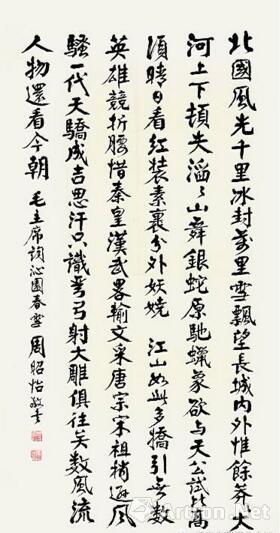 北國風光千里冰封萬里雪飄望長城內外惟餘莽大
河上下頓失滔々山舞銀蛇原馳蠟象欲與天公試比高
須晴日看紅装素裹分外妖嬈 江山如此多嬌引無數
英雄競折腰惜秦皇漢武畧輸文采唐宗宋祖稍遜風
騷一代天驕成吉思汗只識彎弓射大雕俱往矣數風流
人物還看今朝 毛主席詞沁園春雪 周昭怡敬書